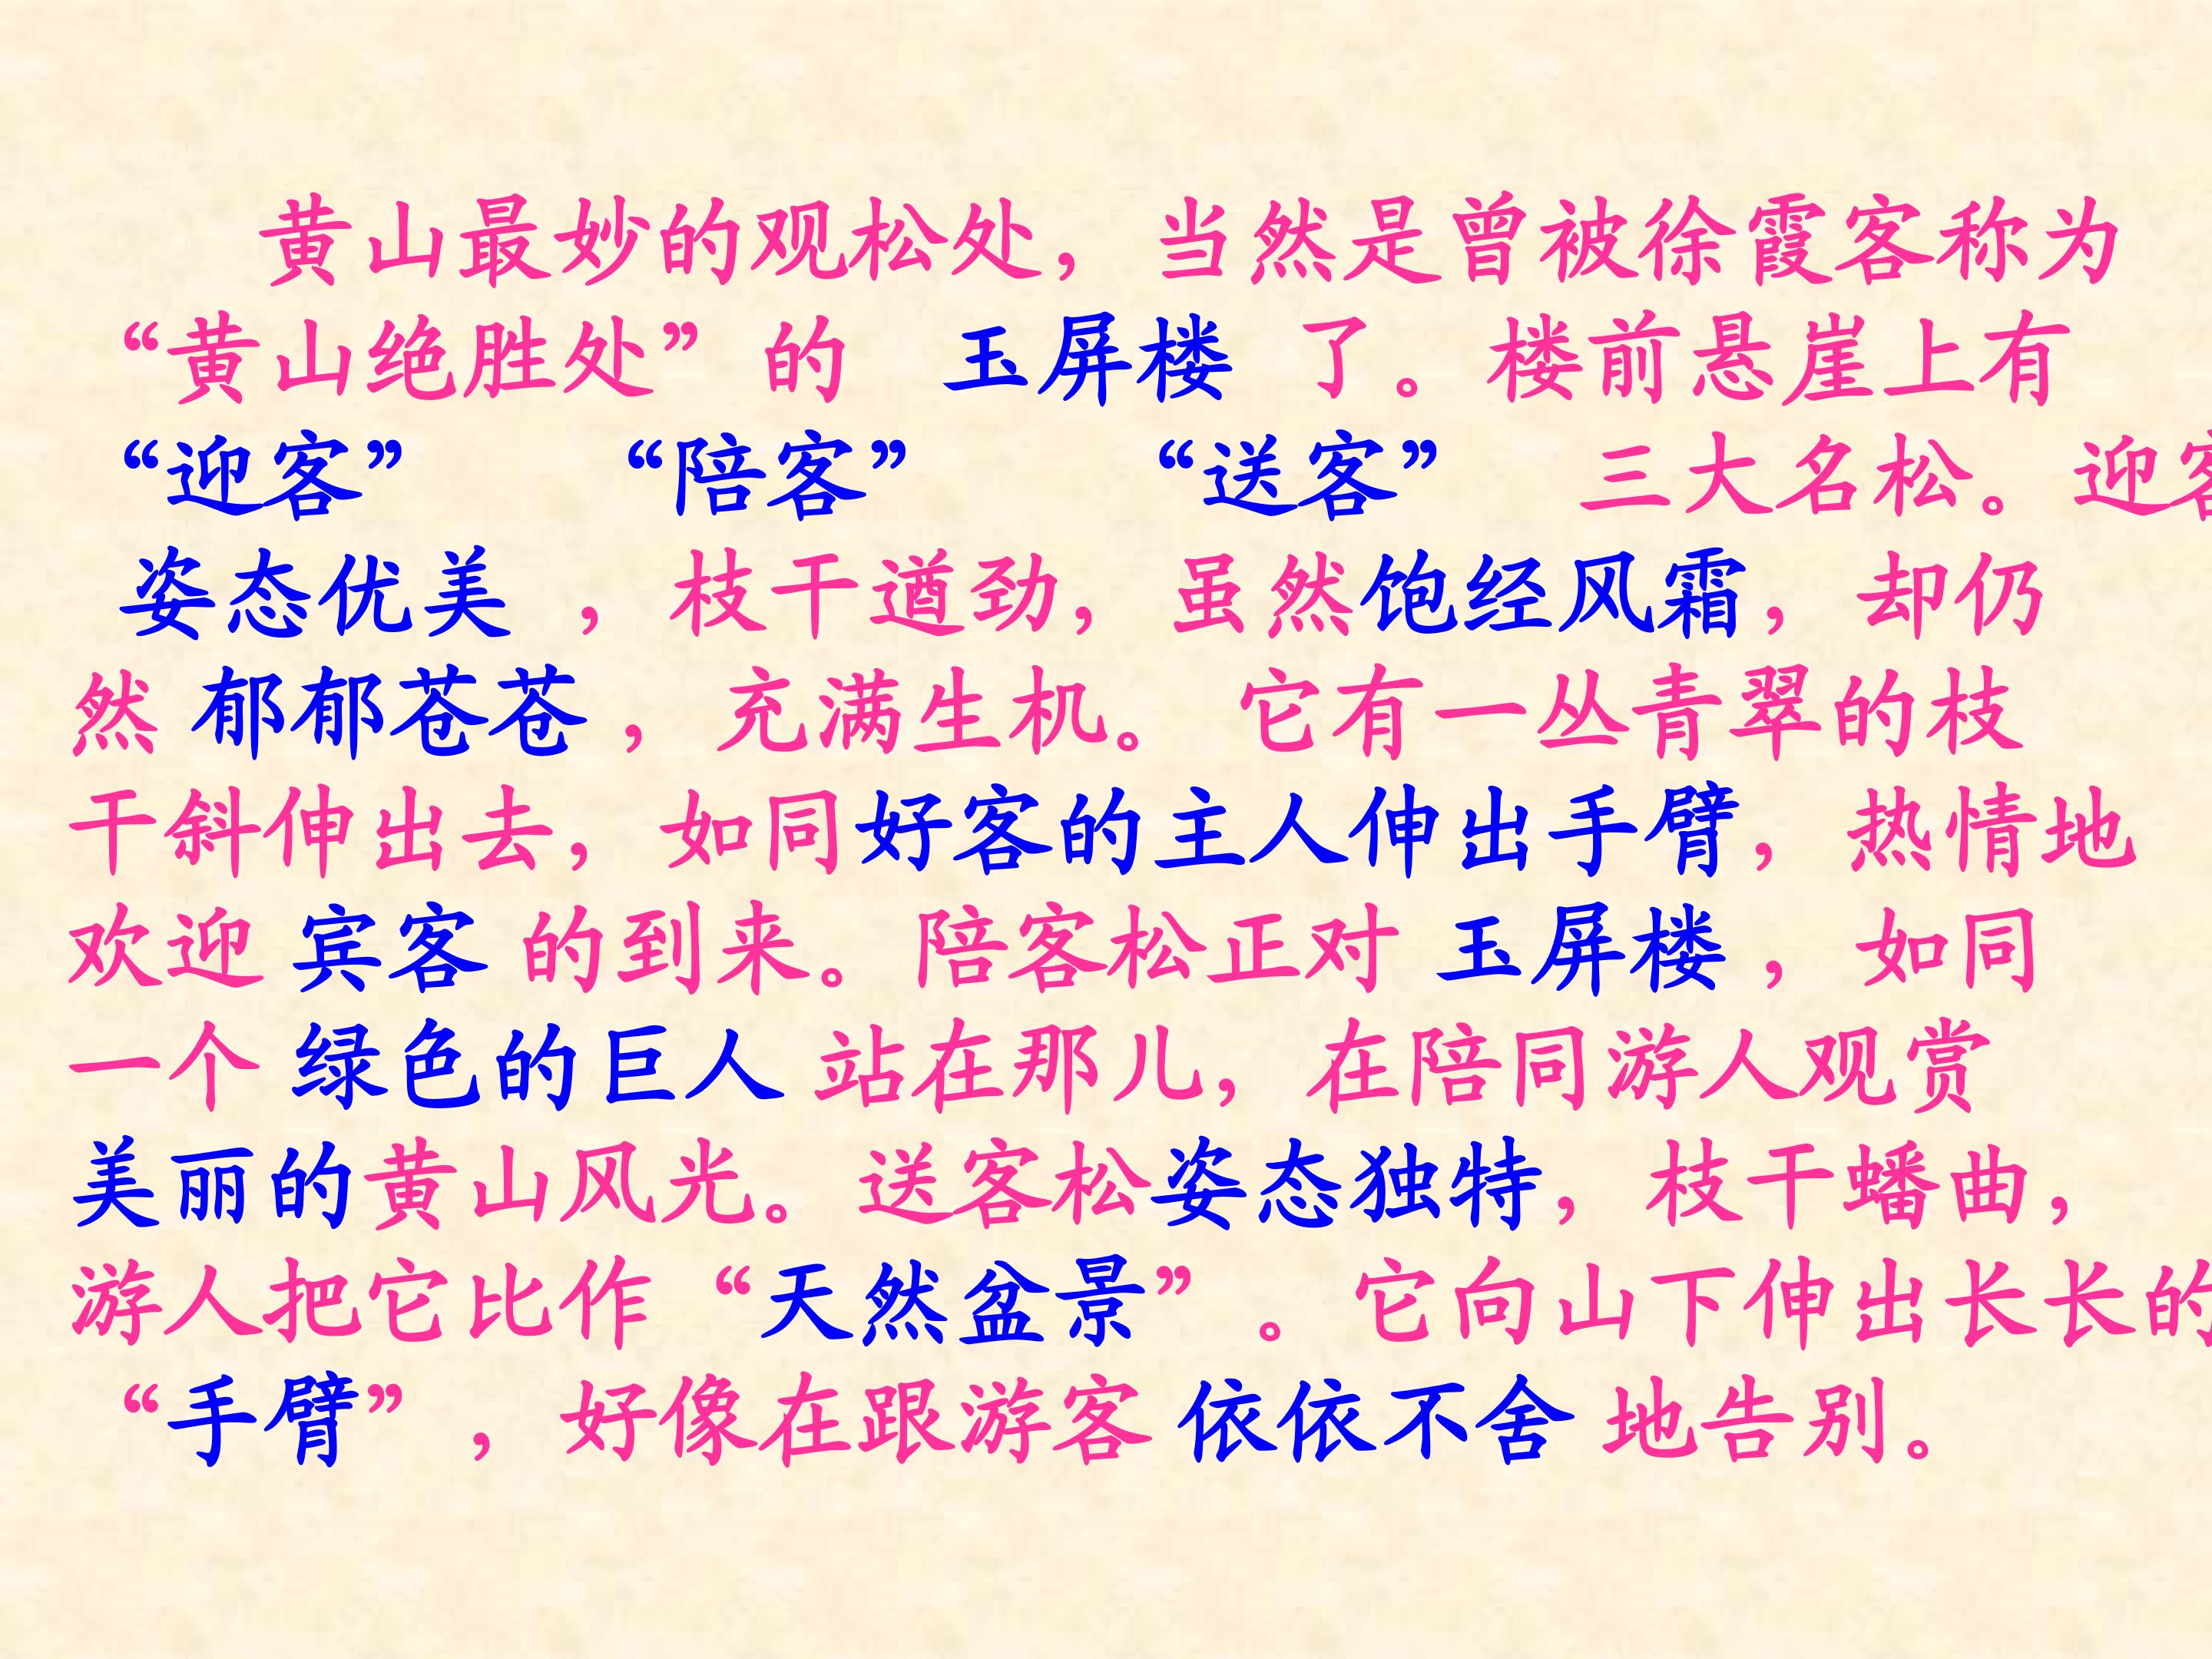 黄山最妙的观松处，当然是曾被徐霞客称为
“黄山绝胜处”的 玉屏楼 了。楼前悬崖上有
“迎客” “陪客” “送客” 三大名松。迎客
姿态优美 ，枝干遒劲，虽然饱经风霜，却仍
然 郁郁苍苍 ，充满生机。它有一丛青翠的枝
干斜伸出去，如同好客的主人伸出手臂，热情地
欢迎 宾客 的到来。陪客松正对 玉屏楼 ，如同
一个 绿色的巨人 站在那儿，在陪同游人观赏
美丽的黄山风光。送客松姿态独特，枝干蟠曲，
游人把它比作“天然盆景”。它向山下伸出长长的
“手臂”，好像在跟游客 依依不舍 地告别。